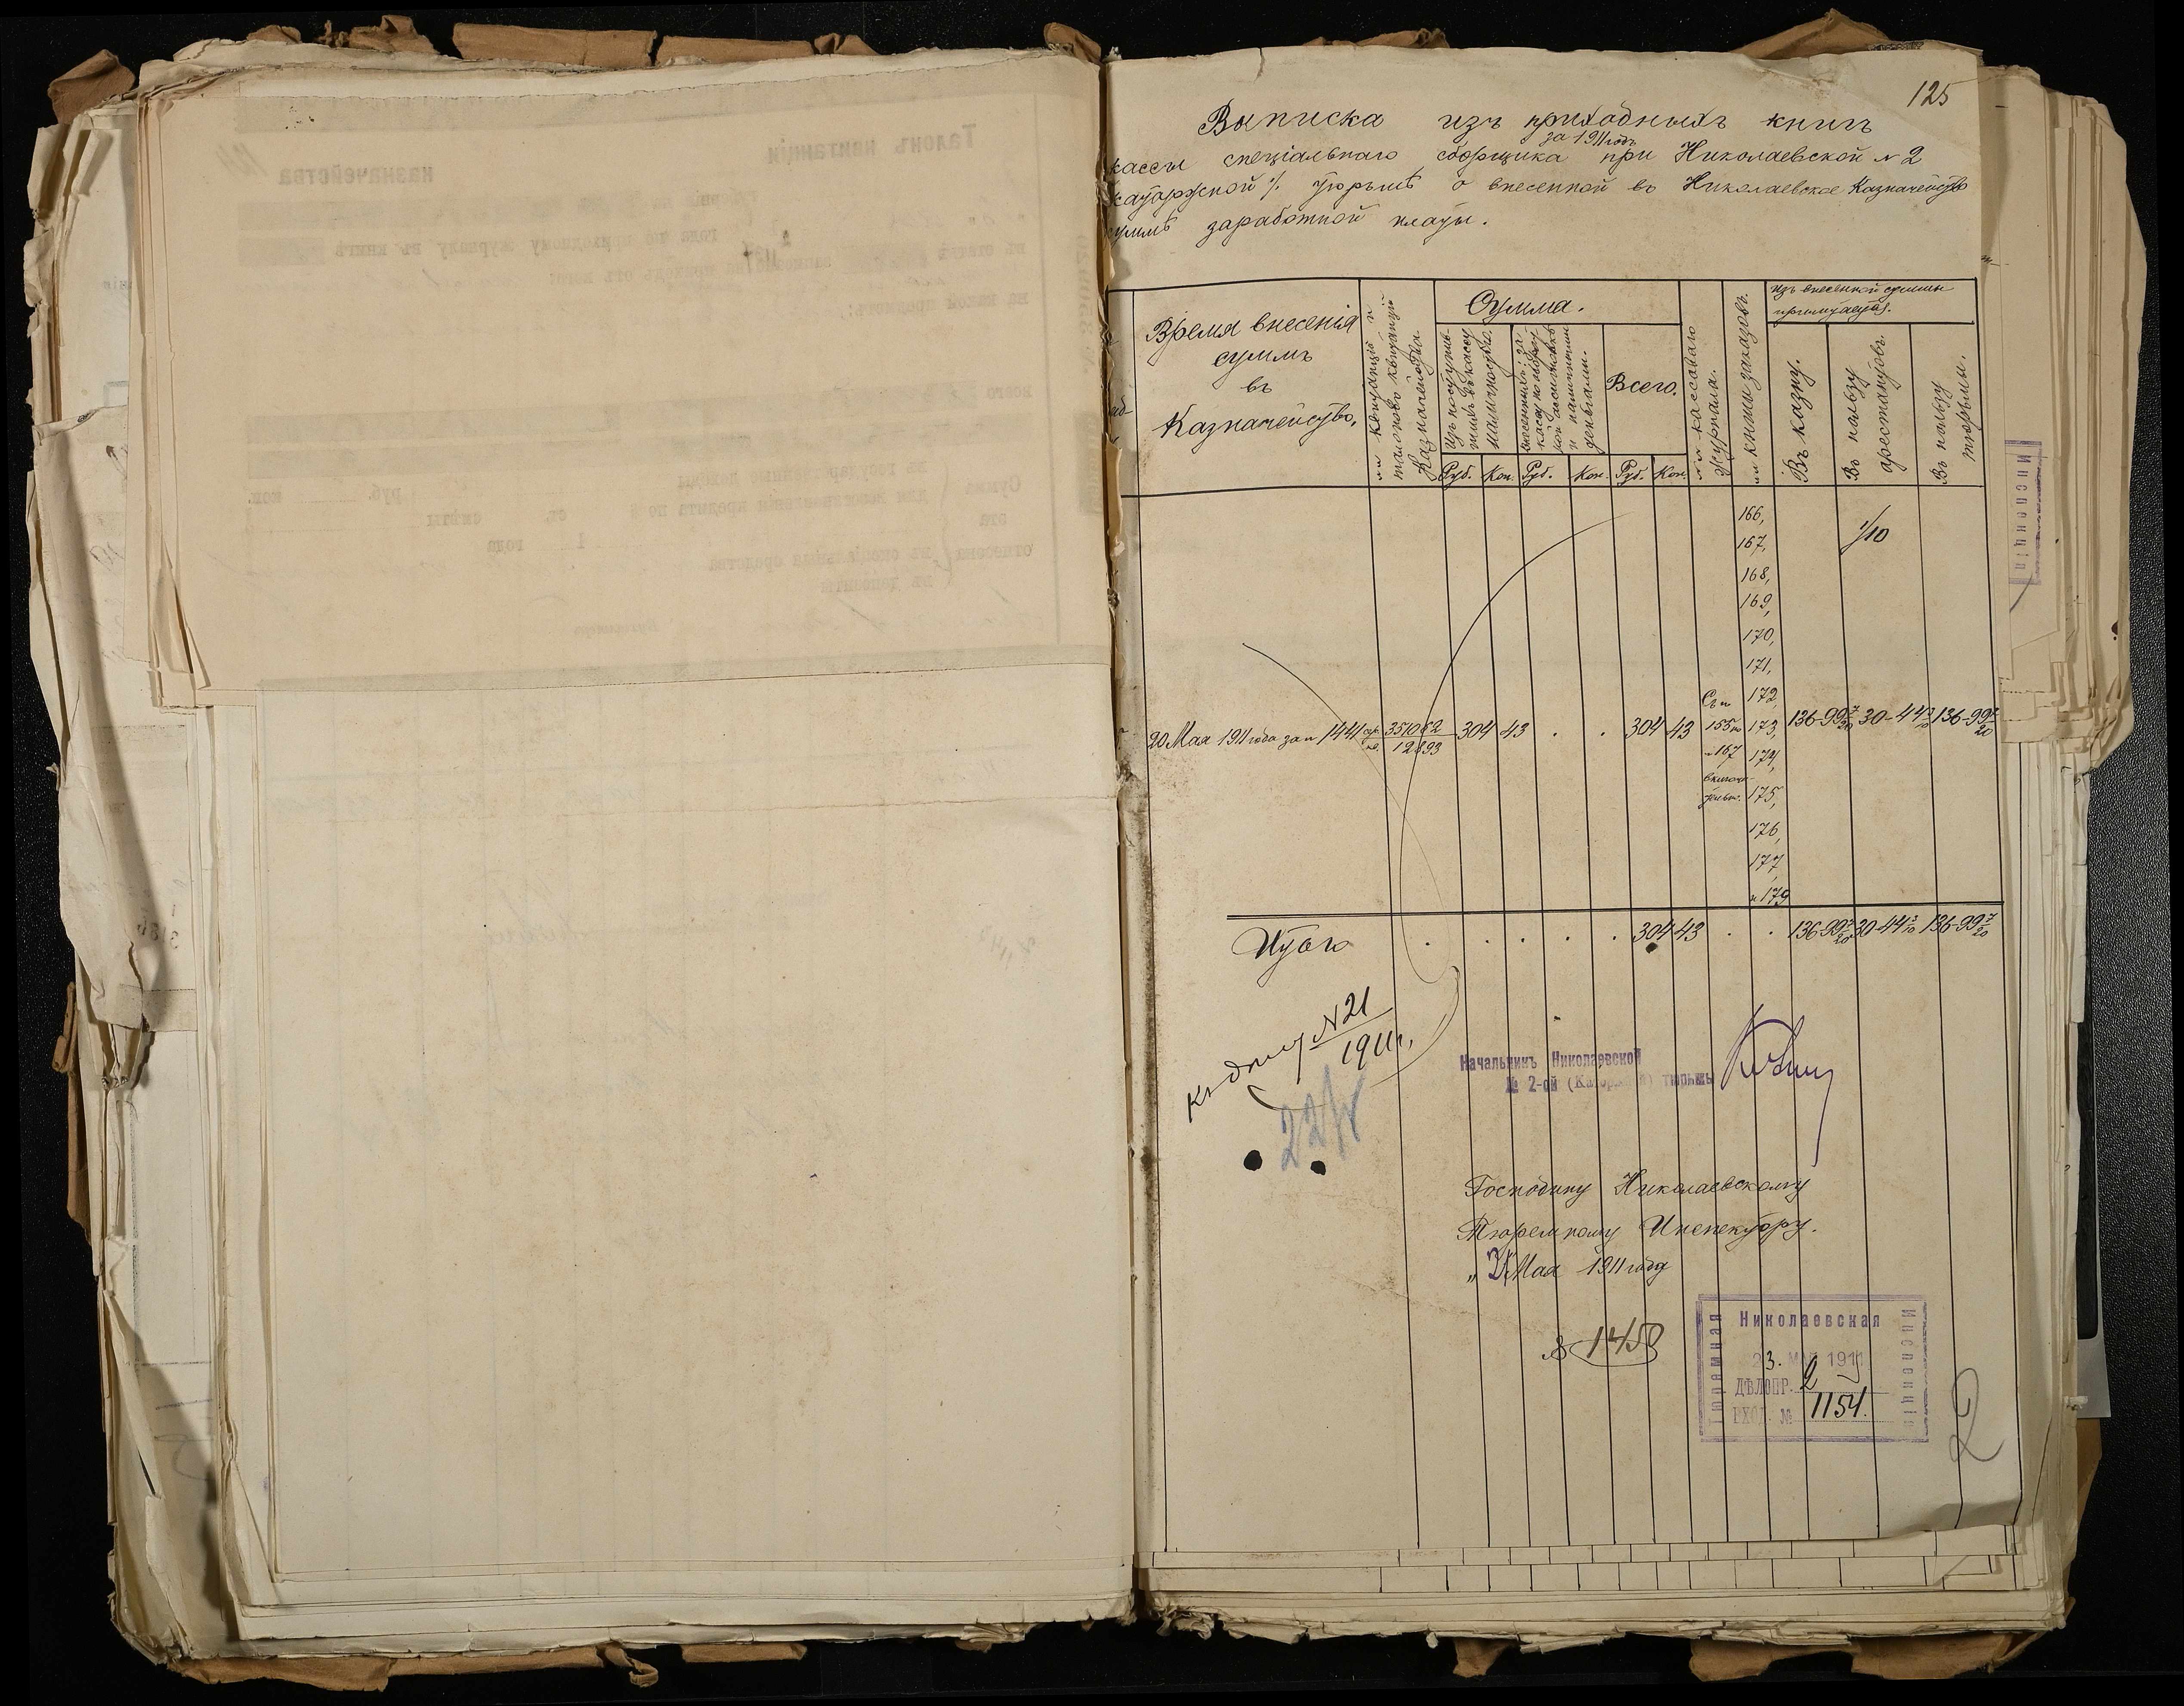 125
Выписка изъ приходныхъ книгъ
за 1911 годъ
кассы спеціальнаго сборщика при Николаевской №2
каторжной т. тюрьмѣ о внесенной въ Николаевское Казначейство
суммѣ заработной платы.
Время внесенія
суммъ
въ
Казначейство.
№№ квитанцій и
талоновъ квитанцій
Казначейства.
Сумма.
Изъ поступив-
шихъ въ кассу
наличностью.
и наличными
деньгами.
Всего.
Руб. Коп. Руб. Коп. Руб. Коп.
№№ кассоваго
журнала.
№№ книги заказовъ.
Изъ внесенной суммы
причитается.
Въ казну.
Въ пользу
арестантовъ.
Въ пользу
тюрьмы.
1/10
166,
167,
168,
169,
170,
171,
172,
173,
174,
175,
176,
177,
и 179
20 Мая 1911 года за № 1441 351062 304 43 . . 304 43 136-99 7/20 30-44 3/10 136-99 7/20
12893
Съ №
155 по
№ 167
включи-
тельно.
Итого . . . . . 304 43 . . 136-99 7/20 30-44 3/10 136-99 7/20
Къ дѣлу №21
1911 г.
Начальникъ Николаевской
№ 2-ой (Каторжной) тюрьмы
Господину Николаевскому
Тюремному Инспектору.
„21" Мая 1911 года
№ 1450
Николаевская
Тюремная
Инспекція
23. МАЯ 1911
ДѢЛОПР. 2
ВХОД. № 1154.
2
Инспекція
Талонъ квитанціи
казначейства
года по приходному журналу въ книгѣ
записано на приходъ отъ кого:
на какой предметъ:
всего
Сумма
эта
отнесена
въ государственные доходы
руб. коп.
ст. смѣты
1 года
въ спеціальныя средства
въ депозиты
Бухгалтеръ